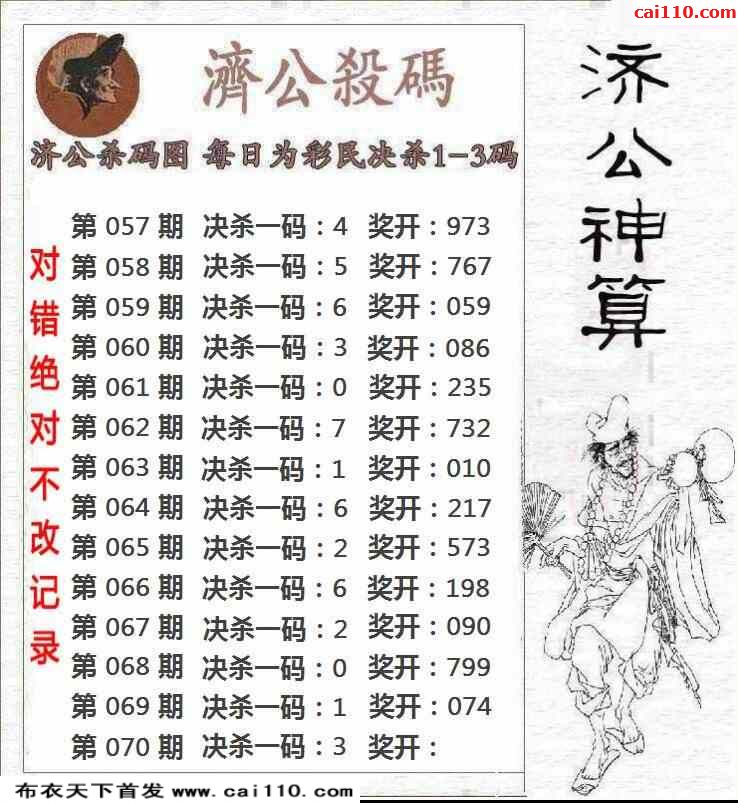 cai110.com
濟公殺碼
济公杀码图 每日为彩民决杀1-3码
第 057 期 决杀一码：4 奖开：973
第 058 期 决杀一码：5 奖开：767
第 059 期 决杀一码：6 奖开：059
第 060 期 决杀一码：3 奖开：086
第 061 期 决杀一码：0 奖开：235
第 062 期 决杀一码：7 奖开：732
第 063 期 决杀一码：1 奖开：010
第 064 期 决杀一码：6 奖开：217
第 065 期 决杀一码：2 奖开：573
第 066 期 决杀一码：6 奖开：198
第 067 期 决杀一码：2 奖开：090
第 068 期 决杀一码：0 奖开：799
第 069 期 决杀一码：1 奖开：074
第 070 期 决杀一码：3 奖开：
对错绝对不改记录
济公神算
布衣天下首发 www.cai110.com